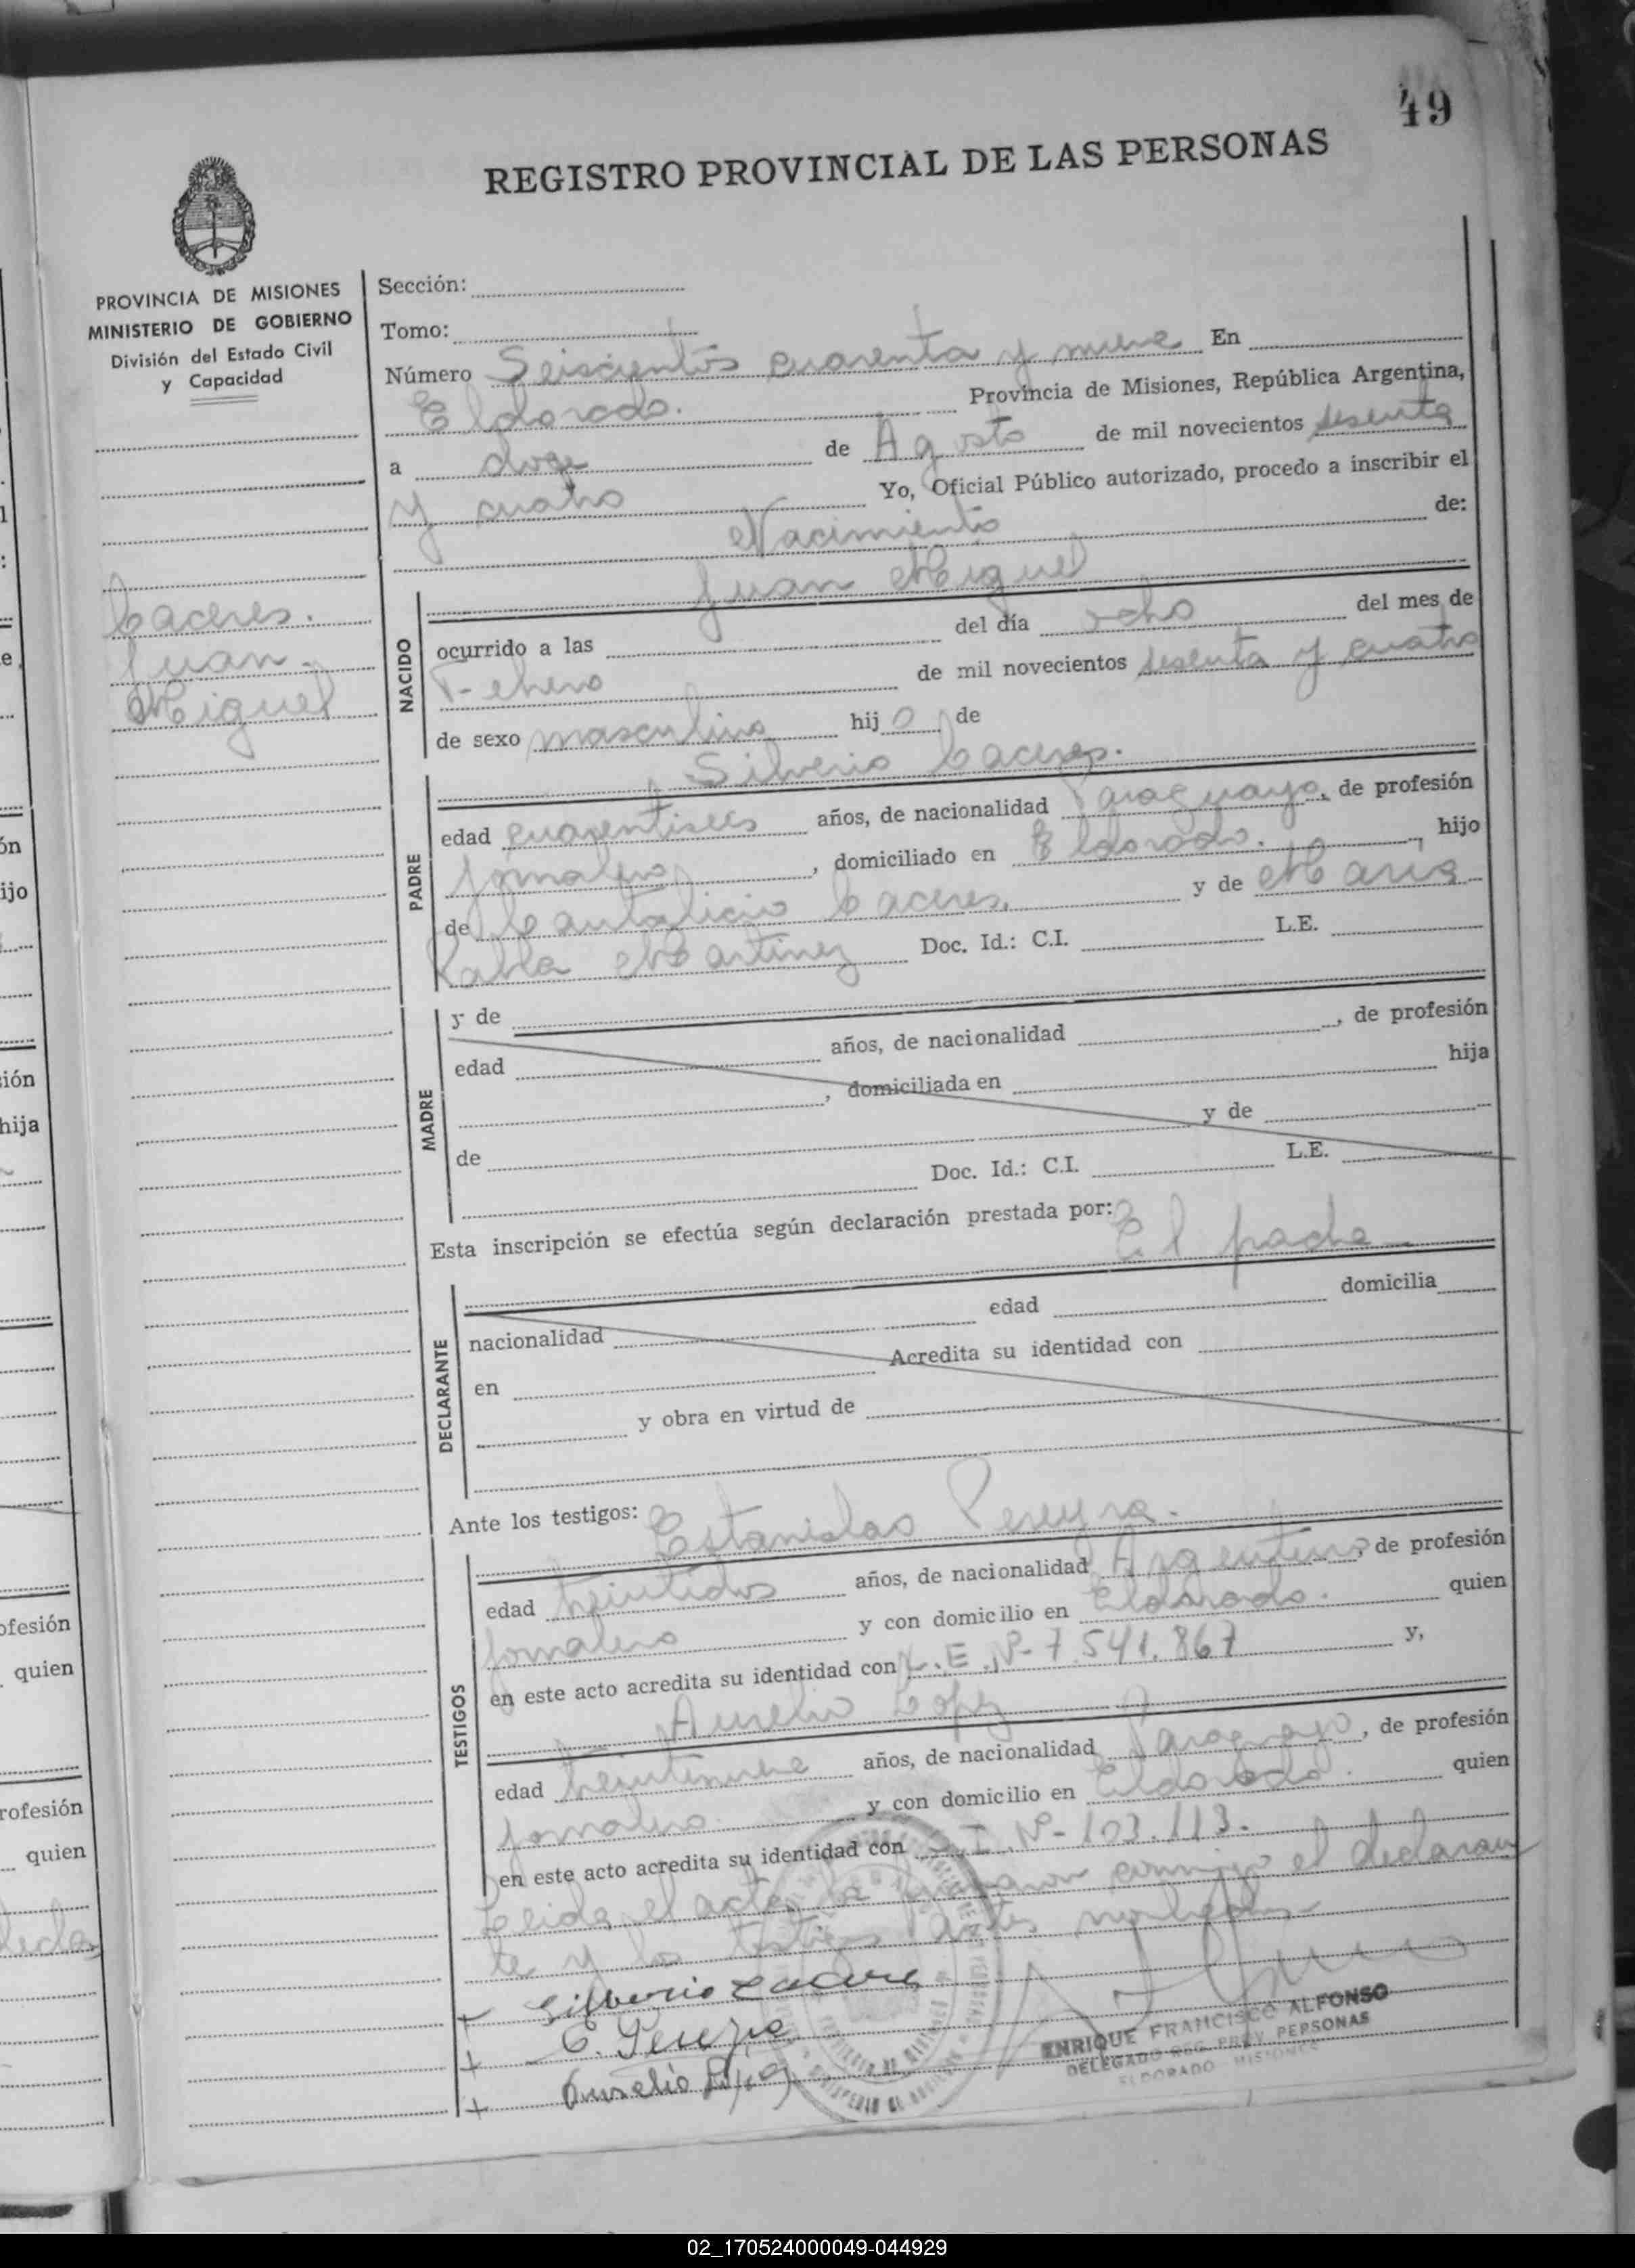 49
REGISTRO PROVINCIAL DE LAS PERSONAS
PROVINCIA DE MISIONES
MINISTERIO DE GOBIERNO
División del Estado Civil
y Capacidad
Caceres.
Juan
Miguel
Sección:
Tomo:
Número Seiscientos cuarenta y nueve En
Eldorado. Provincia de Misiones, República Argentina,
a doce de Agosto de mil novecientos sesenta
y cuatro Yo, Oficial Público autorizado, procedo a inscribir el
Nacimiento de:
Juan Miguel
NACIDO
ocurrido a las del día ocho del mes de
Febrero de mil novecientos sesenta y cuatro
de sexo masculino hijo de
Silverio Caceres.
PADRE
edad cuarentiseis años, de nacionalidad Paraguayo, de profesión
Jornalero, domiciliado en Eldorado. hijo
de Cantalicio Caceres. y de Maria
Martinez Doc. Id.: C.I. L.E.
MADRE
y de
edad años, de nacionalidad , de profesión
, domiciliada en hija
de y de
Doc. Id.: C.I. L.E.
Esta inscripción se efectúa según declaración prestada por: El padre
DECLARANTE
nacionalidad edad domicilia
en Acredita su identidad con
y obra en virtud de
Ante los testigos: Estanislao Pereyra.
TESTIGOS
edad treintidos años, de nacionalidad Argentino, de profesión
Jornalero y con domicilio en Eldorado. quien
en este acto acredita su identidad con L.E. Nº- 7.541.867 y,
Aurelio Lopez
edad treintinueve años, de nacionalidad Paraguayo, de profesión
Jornalero. y con domicilio en Eldorado. quien
en este acto acredita su identidad con C.I. Nº- 103.113.
Leida el acta la firmaron conmigo el declaran
te y los testigos antes nombrados
Silverio Cacere
E. Pereyra
Aurelio Lopez
ENRIQUE FRANCISCO ALFONSO
DELEGADO REG. PROV. PERSONAS
ELDORADO MISIONES
02_170524000049-044929